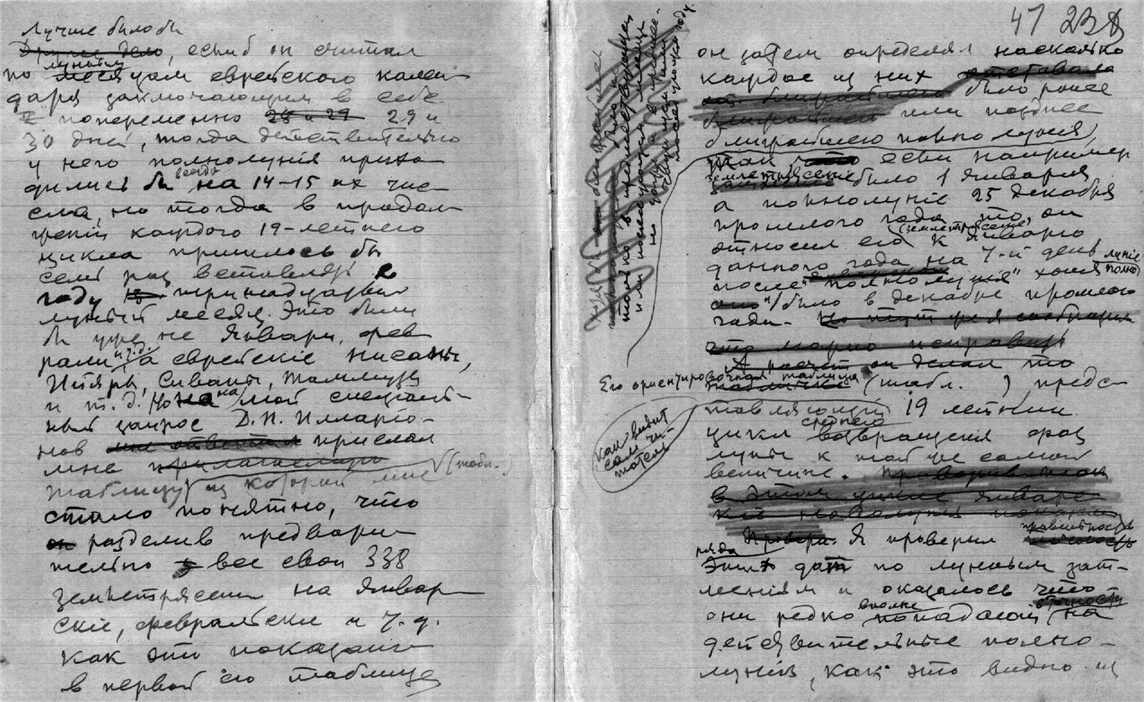 Лучше было бы
Другое дело, еслиб он считал
по лунным месяцам еврейского кален-
даря заключающим в себе
попеременно 28 и 29 29 и
30 дней, тогда действительно
у него полнолунія прихо-
дились бы всегда на 14-15 их чис-
ла, но тогда в продол-
женіи каждого 19-летнего
цикла пришлось бы
семь раз вставлять в
году тринадцатый
лунный месяц. Это были
бы уже не Январи, фев-
рали и т.д. а еврейскіе нисаны,
Ииары, Сиваны, Таммузы
и т.д. Но на мой спеціаль-
ный запрос Д. И. Иларіо-
нов мне ответил прислал
мне прилагаемую (табл. )
таблицу из которой мне
стало понятно, что
он разделив предвари-
тельно все свои 338
землетрясений на январ-
скіе, февральскіе и т. д.
как это показано
в первой его таблице
47 238
он затем определял насколько
каждое из них отставало
от ближайшего было ранее
или позднее
ближайшего полнолунія,
так что если например
землетрясеніе было 1 Января
а полнолуніе 25 декабря
прошлого года, то он
относил его (землетрясеніе) к Январю
данного года на 7-й день
после "полнолунія" хотя полнолуніе
оно было в декабре прошлого
года. Но тут уж я сообразил
что можно исправить
А насчет он делал то
Его ориентировочная таблица (табл. ) предс-
тавляющій 19 летний
как видит
сам чи-
татель
цикл среднего возвращенія фаз
луны к той же самой
величине. Проверив так
в этом цикле январс-
кіе новолунія
Провери Я проверил правильность
ряда Этих дат по лунным зат-
меніям и оказалось что
они редко вполне попадают в точности на
действительные полно-
лунія, как это видно из